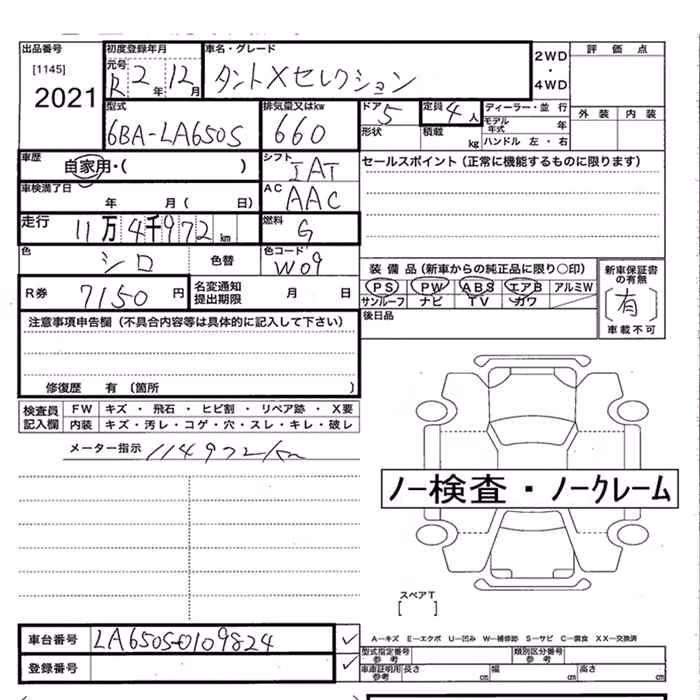 出品番号 初度登録年月 車名・グレード 2WD・4WD 評価点
[1145] 元号 R 2年 12月 タントXセレクション
2021
型式 排気量又はkw ドア 5 定員 4人 ディーラー・並行 外装 内装
6BA-LA650S 660 形状 積載 kg モデル年式 年
ハンドル 左・右
車歴 自家用・( ) シフト IAT セールスポイント(正常に機能するものに限ります)
車検満了日 年 月( 日) AC AAC
走行 11万4千972km 燃料 G
色 シロ 色替 色コード W09 装備品(新車からの純正品に限り○印) 新車保証書の有無
R券 7150円 名変通知提出期限 月 日 PS PW ABS エアB アルミW (有)
サンルーフ ナビ TV カワ 車載不可
注意事項申告欄(不具合内容等は具体的に記入して下さい) 後日品
修復歴 有(箇所 )
検査員記入欄 FW キズ・飛石・ヒビ割・リペア跡・X要
内装 キズ・汚レ・コゲ・穴・スレ・キレ・破レ
メーター指示 114972km
ノー検査・ノークレーム
スペアT
[ ]
車台番号 LA650S-0109824 ✓ A―キズ E―エクボ U―凹み W―補修跡 S―サビ C―腐食 XX―交換済
登録番号 ✓ 型式指定番号 参考 類別区分番号 参考
車庫証明用 参考 長さ cm 幅 cm 高さ cm